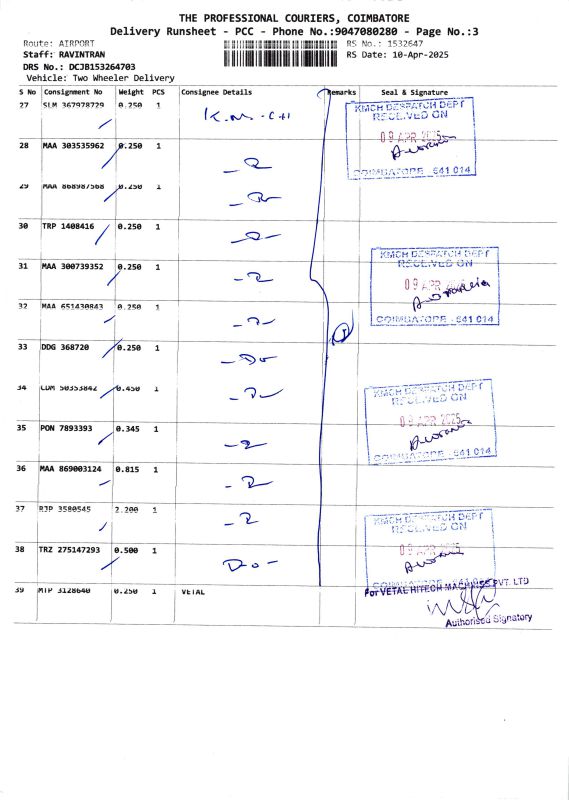 THE PROFESSIONAL COURIERS, COIMBATORE
Delivery Runsheet - PCC - Phone No.:9047080280 - Page No.:3
Route: AIRPORT RS No.: 1532647
Staff: RAVINTRAN RS Date: 10-Apr-2025
DRS No.: DCJB153264703
Vehicle: Two Wheeler Delivery
S No Consignment No Weight PCS Consignee Details Remarks Seal & Signature
27 SLM 367978729 0.250 1 K.M.CH
28 MAA 303535962 0.250 1
29 MAA 868987568 0.250 1
30 TRP 1408416 0.250 1
31 MAA 300739352 0.250 1
32 MAA 651430843 0.250 1
33 DDG 368720 0.250 1 - Do
34 CDM 50353842 0.450 1
35 PON 7893393 0.345 1
36 MAA 869003124 0.815 1
37 RJP 3580545 2.200 1
38 TRZ 275147293 0.500 1 Do -
39 MTP 3128640 0.250 1 VETAL
KMCH DESPATCH DEPT
RECEIVED ON
09 APR 2025
COIMBATORE - 641 014
KMCH DESPATCH DEPT
RECEIVED ON
09 APR
COIMBATORE - 641 014
KMCH DESPATCH DEPT
RECEIVED ON
09 APR 2025
COIMBATORE - 641 014
KMCH DESPATCH DEPT
RECEIVED ON
09 APR
COIMBATORE - 641 014
For VETAL HITECH MACHINES PVT. LTD
Authorised Signatory